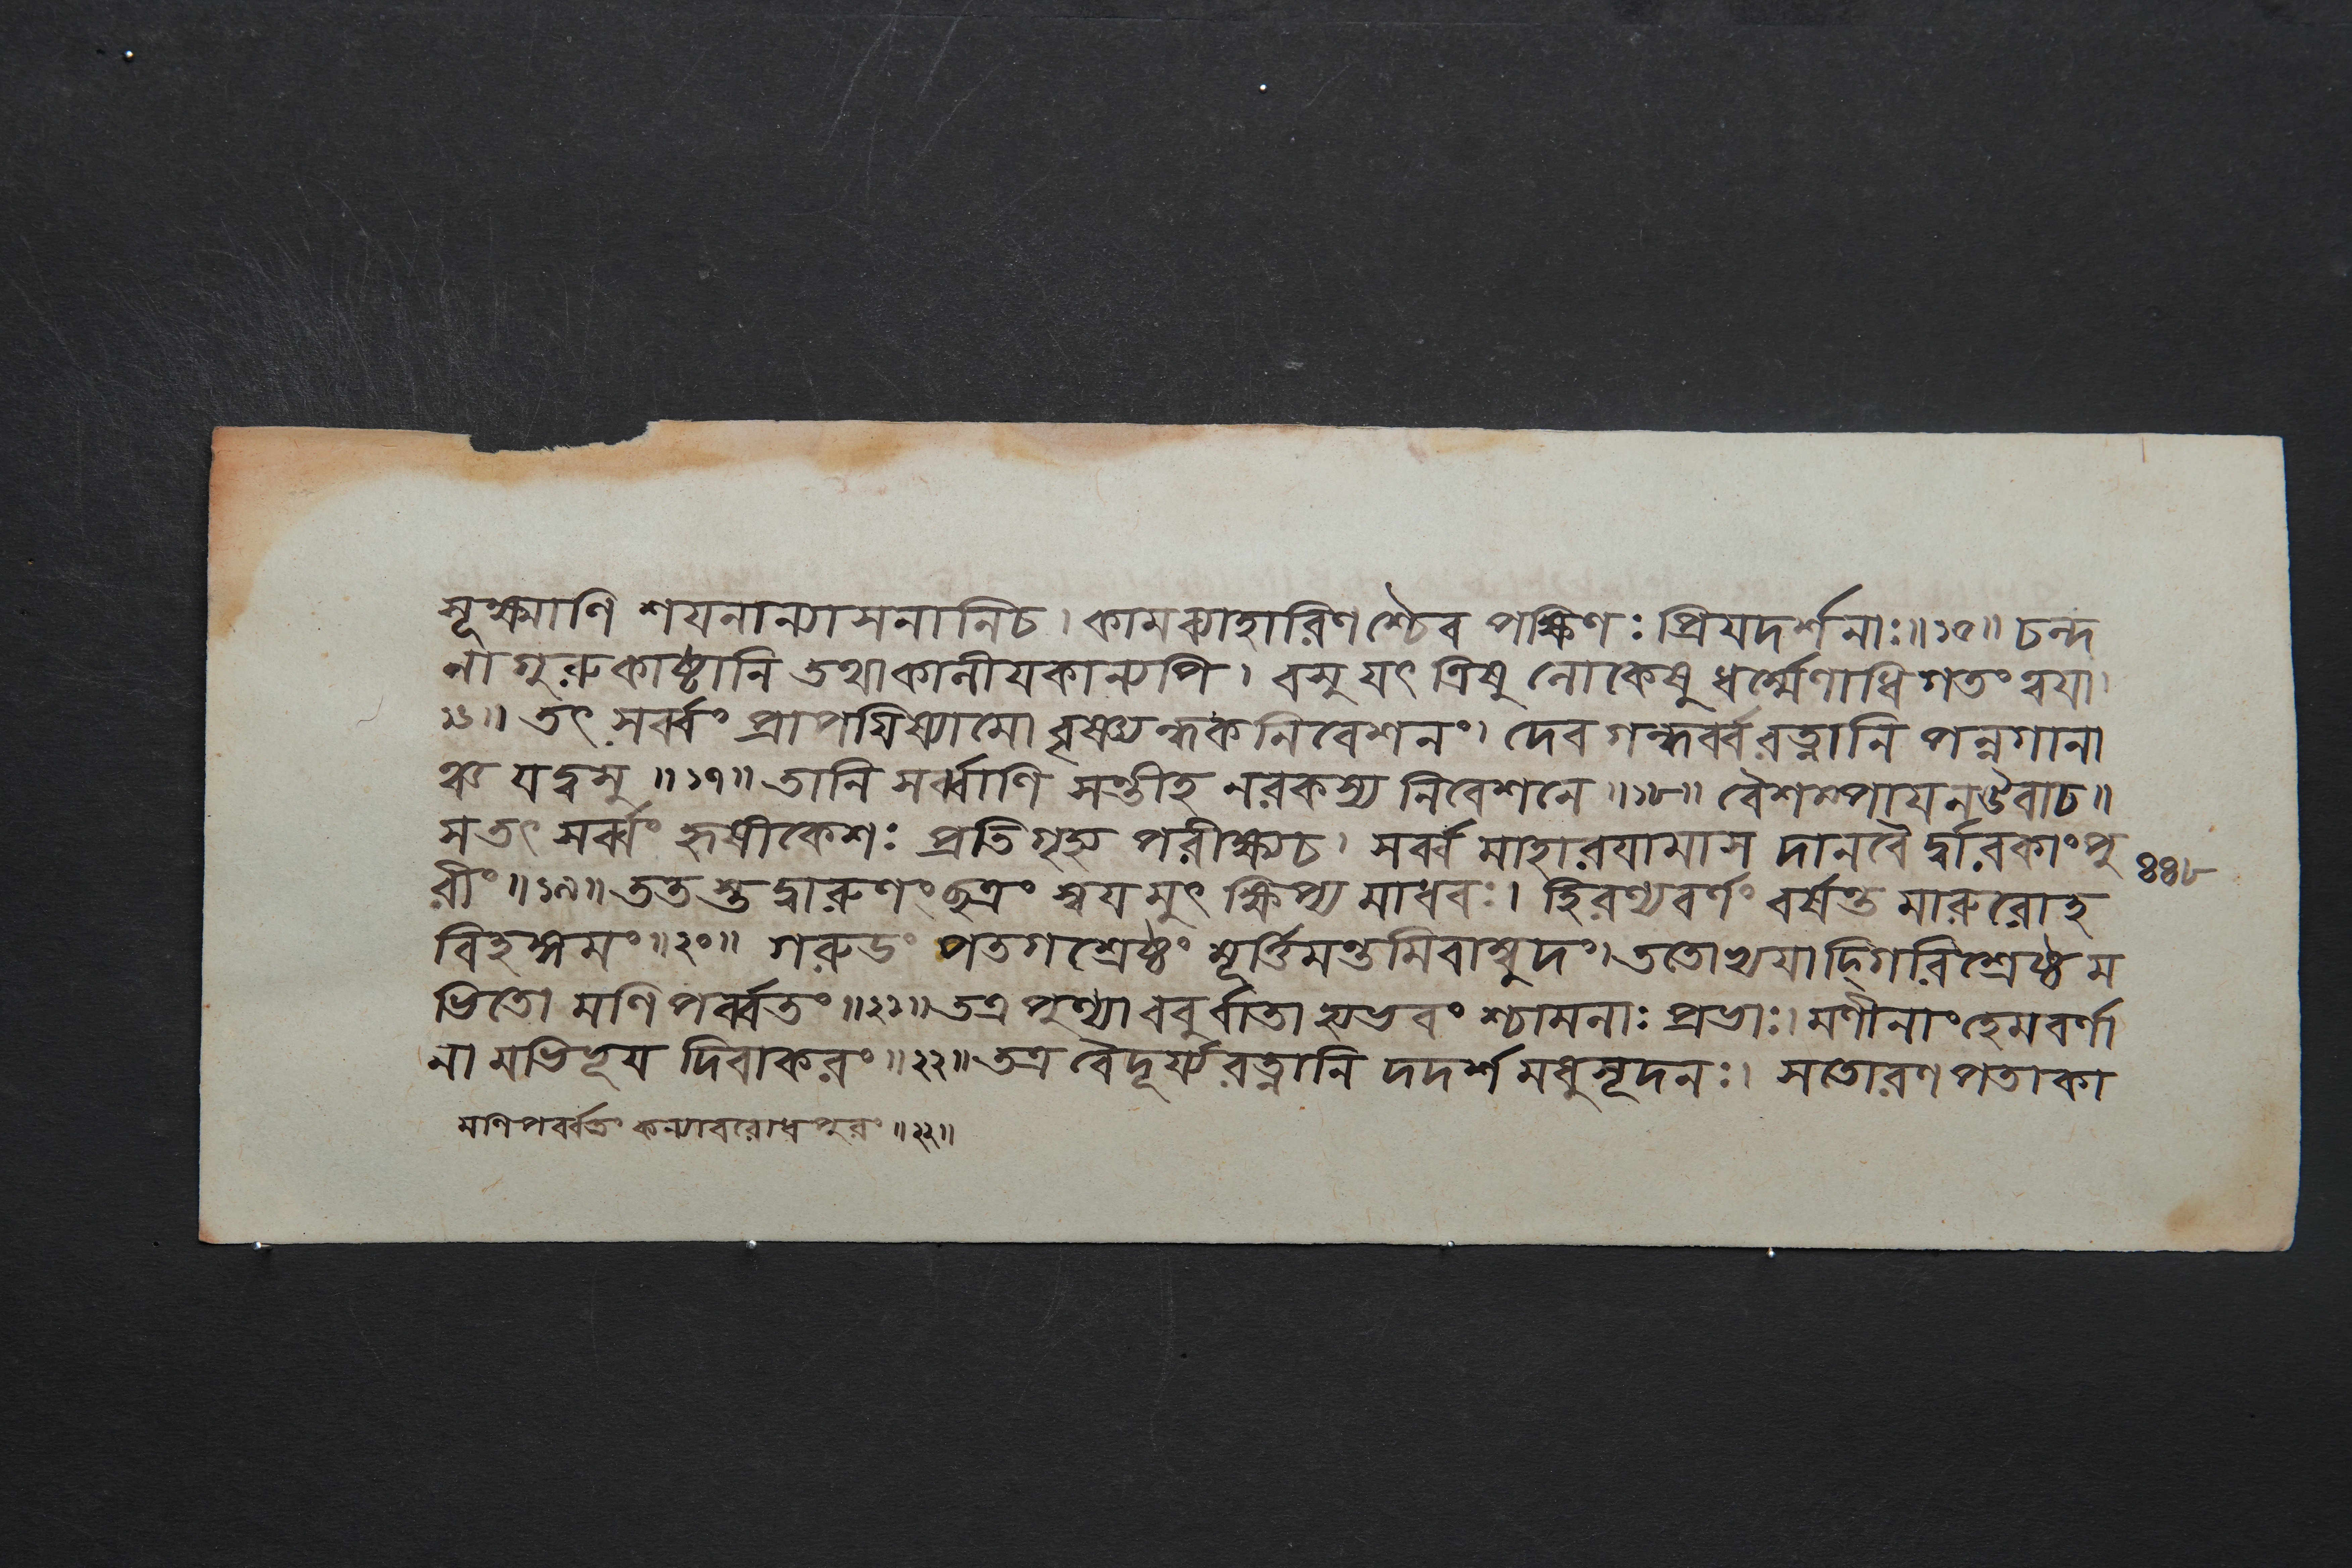 সূক্ষ্মাণি শয়নান্যাসনানিচ । কামব্যাহারিণশ্চৈব পক্ষিণঃ প্রিয়দর্শনাঃ ॥ ১৫ ॥ চন্দ
নাগুরুকাষ্ঠানি তথাকানীয়কান্যপি । বসু যৎ ত্রিষু লোকেষু ধর্ম্মেণাধিগতং ত্বয়া ।
১৬ ॥ তৎ সর্ব্বং প্রাপয়িষ্যামো বৃষ্ণ্যন্ধকনিবেশনং । দেব গন্ধর্ব্ব রত্নানি পন্নগানা
ঞ্চ যদ্বসু ॥ ১৭ ॥ তানি সর্ব্বাণি সন্তীহ নরকস্য নিবেশনে ॥ ১৮ ॥ বৈশম্পায়নউবাচ ॥
সতৎ সর্ব্বং হৃষীকেশঃ প্রতিগৃহ্য পরীক্ষ্যচ । সর্ব্ব মাহারয়ামাস দানবৈ র্দ্বারকাংপু
রীং ॥ ১৯ ॥ ততস্তদ্বারুণং ছত্রং স্বয়মুৎক্ষিপ্য মাধবঃ । হিরণ্যবর্ণং বর্ষন্ত মারুরোহ
বিহঙ্গমং ॥ ২০ ॥ গরুডং পতগশ্রেষ্ঠং মূর্ত্তিমন্তমিবাম্বুদং । ততোভ্যয়াদ্গিরিশ্রেষ্ঠম
ভিতো মণিপর্ব্বতং ॥ ২১ ॥ তত্র পুণ্যা ববুর্ব্বাতা হ্যভবং শ্চামলাঃ প্রভাঃ । মণীনাং হেমবর্ণা
না মভিভূয় দিবাকরং ॥ ২২ ॥ তত্র বৈদূর্য্যরত্নানি দদর্শ মধুসূদনঃ । সতোরণপতাকা
৪৪৮
মণিপর্ব্বতং কন্যাবরোধপুরং ॥ ২২ ॥